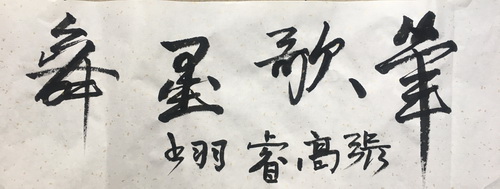 筆歌墨舞
張高睿翊